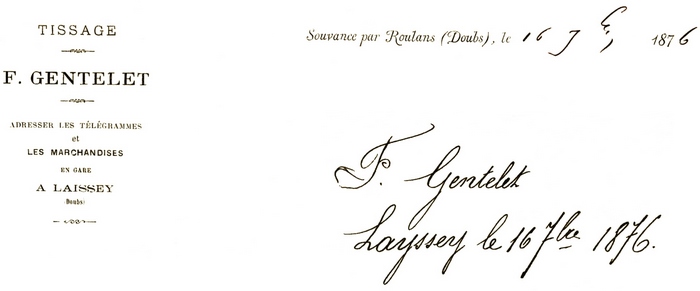 TISSAGE
F. GENTELET
ADRESSER LES TÉLÉGRAMMES
et
LES MARCHANDISES
EN GARE
A LAISSEY
(Doubs)
Souvance par Roulans (Doubs), le 16 7e 1876
F. Gentelet
Layssey le 16 7bre 1876.